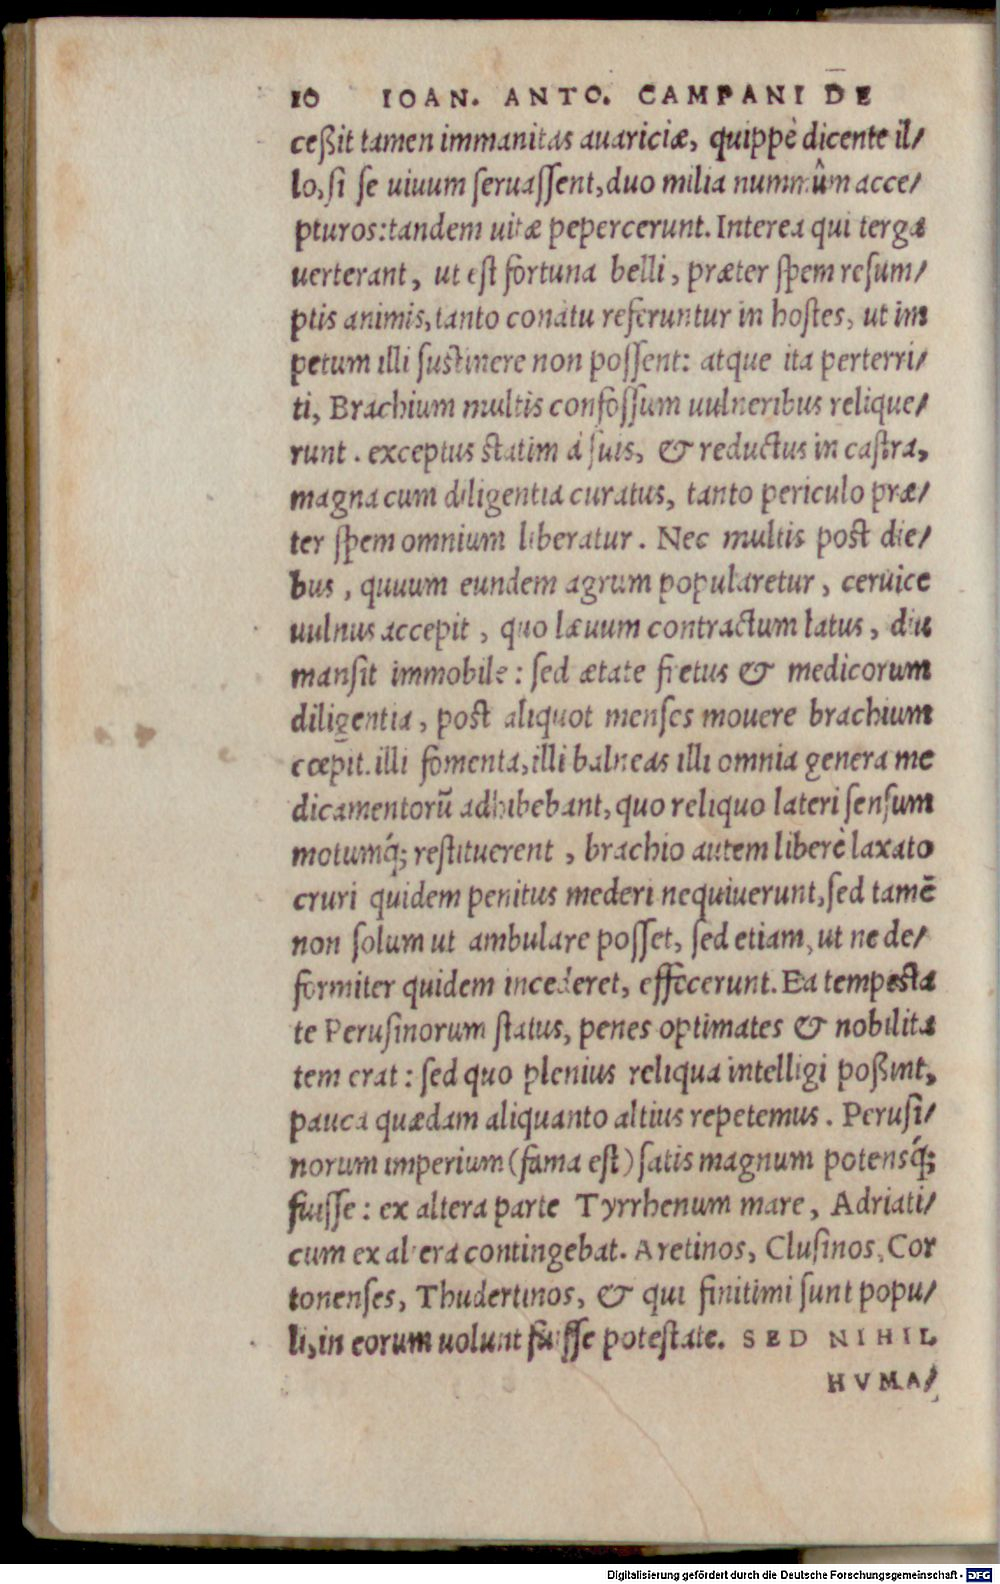 10 IOAN. ANTO. CAMPANI DE
ceßit tamen immanitas auariciæ, quippè dicente il/
lo, ſi ſe uiuum ſeruaſſent, duo milia nummûm acce/
pturos: tandem uitæ pepercerunt. Interea qui terga
uerterant, ut eſt fortuna belli, præter ſpem reſum/
ptis animis, tanto conatu referuntur in hoſtes, ut im
petum illi ſuſtinere non poſſent: atque ita perterri/
ti, Brachium multis confoſſum uulneribus relique/
runt. exceptus ſtatim à ſuis, & reductus in caſtra,
magna cum diligentia curatus, tanto periculo præ/
ter ſpem omnium liberatur. Nec multis poſt die/
bus, quuum eundem agrum popularetur, ceruice
uulnus accepit, quo læuum contractum latus, diu
manſit immobile: ſed ætate fretus & medicorum
diligentia, poſt aliquot menſes mouere brachium
cœpit. illi fomenta, illi balneas illi omnia genera me
dicamentorũ adhibebant, quo reliquo lateri ſenſum
motumq́; reſtituerent, brachio autem liberè laxato
cruri quidem penitus mederi nequiuerunt, ſed tamẽ
non ſolum ut ambulare poſſet, ſed etiam, ut ne de/
formiter quidem incederet, effecerunt. Ea tempeſta
te Peruſinorum ſtatus, penes optimates & nobilita
tem erat: ſed quo plenius reliqua intelligi poßint,
pauca quædam aliquanto altius repetemus. Peruſi/
norum imperium (fama eſt) ſatis magnum potensq́;
fuiſſe: ex altera parte Tyrrhenum mare, Adriati/
cum ex altera contingebat. Aretinos, Cluſinos, Cor
tonenſes, Thudertinos, & qui finitimi ſunt popu/
li, in eorum uolunt fuiſſe poteſtate. SED NIHIL
HVMA/
Digitalisierung gefördert durch die Deutsche Forschungsgemeinschaft - DFG